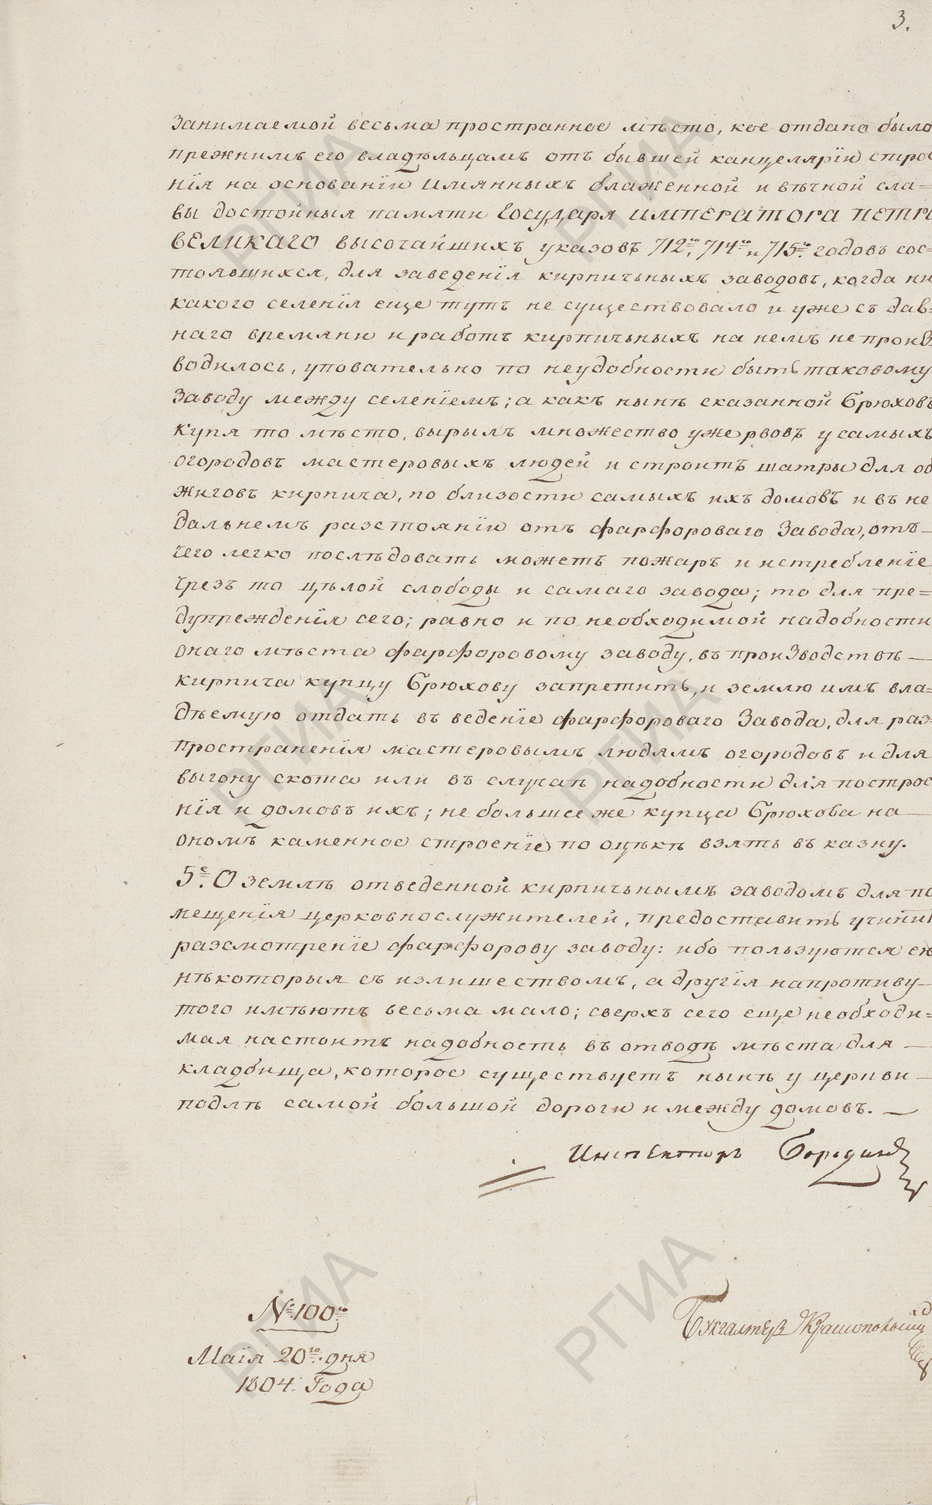 3.
Занимаемой весьма пространное мѣсто, кое отдано было
прежнимъ его владѣльцамъ отъ бывшей канцеляріи строе
нія на основаніи Имянныхъ блаженной и вѣчной сла=
вы достойныя памяти Государя ИМПЕРАТОРА ПЕТРА
ВЕЛИКАГО высочайшихъ указовъ 712го, 714го и 715го годовъ сос
тоявшихся, для заведенія кирпичныхъ заводовъ, когда ни
какого селенія еще тутъ не существовало и уже съ дав=
наго времяни и работъ кирпичныхъ на немъ не произ
водилось, уповательно по неудобности быть таковому
Заводу между селеніемъ; а какъ нынѣ сказанной Брюховъ
купя то мѣсто, вырылъ множество уже рвовъ у самыхъ
огородовъ мастеровыхъ людей и строитъ шатры для об
жиговъ кирпича, по близости самыхъ ихъ домовъ и въ не
дальнемъ разстояніи отъ фарфороваго Завода, отъ
чего легко послѣдовать можетъ пожаръ и истребленіе
чрезъ то цѣлой слободы и самаго завода; то для пре=
дупрежденія сего; равно и по необходимой надобности
онаго мѣста фарфоровому заводу, въ производствѣ
кирпича купцу Брюхову запретить, и землю имъ вла=
дѣемую отдать въ ведение фарфороваго Завода, для раз
пространенія мастеровымъ людямъ огородовъ и для
выгону скота или въ случаѣ надобности для построе
нія и домовъ ихъ; не большее же купца Брюхова на
ономъ каменное строеніе по оцѣнкѣ взять въ казну.
5е. О землѣ отведенной кирпичнымъ заводомъ для по
мещенія церковнослужителей, предоставить учинить
разсмотреніе фарфорову заводу: ибо пользуются ею
нѣкоторыя съ излишествомъ, а другія напротиву
того имѣютъ весьма мало; сверхъ сего еще необходи=
мая настоитъ надобность въ отводѣ мѣста для
кладбища, которое существуетъ нынѣ у церкви
подлѣ самой большой дороги и между домовъ.
Инспекторъ Бородин
№ 100й
Бухгалтеръ
Маія 20го дня
1804. Года
РГИА
РГИА
РГИА
РГИА
РГИА
РГИА